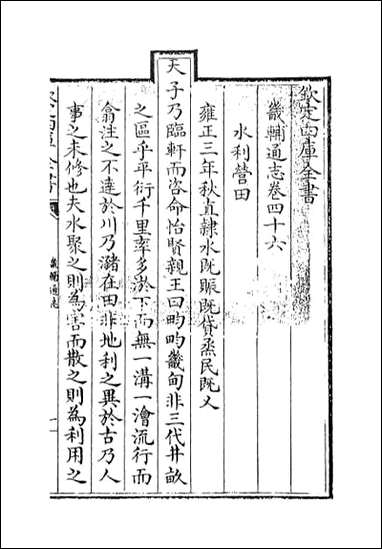 欽定四庫全書
畿輔通志卷四十六
水利營田
雍正三年秋直隸水既賑既貸烝民既乂
天子乃臨軒而咨命怡賢親王曰畇畇畿甸非三代井畝
之區乎平衍千里率多淤下而無一溝一澮流行而
翕注之不達於川乃瀦在田非地利之異於古乃人
事之未修也夫水聚之則為害而散之則為利用之
畿輔通志